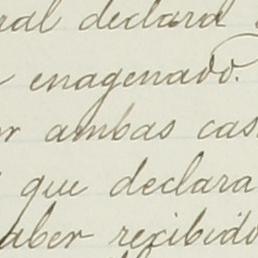 ral declara
enagenado.
r ambas cas
que declara
aber recibido